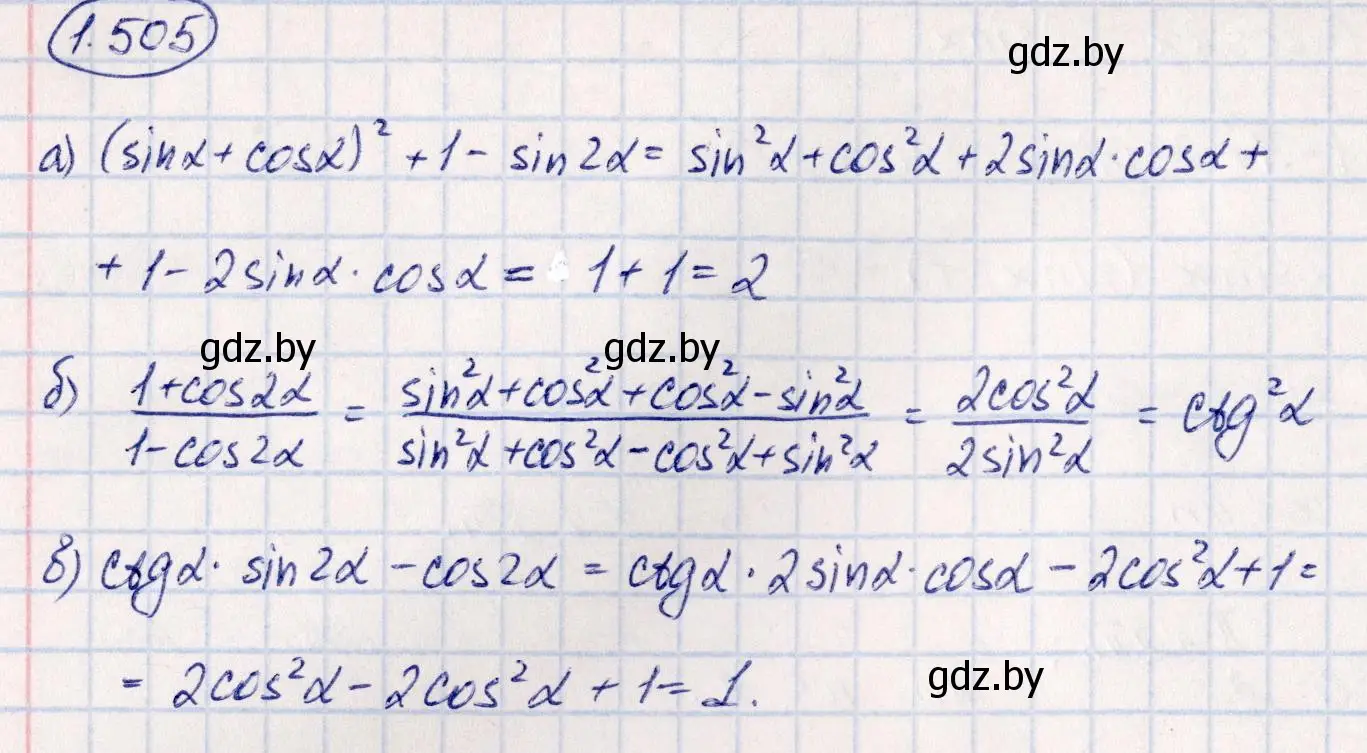 1.505
gdz.by
а) (sinα + cosα)² + 1 - sin2α = sin²α + cos²α + 2sinα · cosα +
+ 1 - 2sinα · cosα = 1 + 1 = 2
gdz.by gdz.by
б) (1+cos2α)/(1-cos2α) = (sin²α+cos²α+cos²α-sin²α)/(sin²α+cos²α-cos²α+sin²α) = (2cos²α)/(2sin²α) = ctg²α
в) ctgα · sin2α - cos2α = ctgα · 2sinα · cosα - 2cos²α + 1 =
= 2cos²α - 2cos²α + 1 = 1.
gdz.by